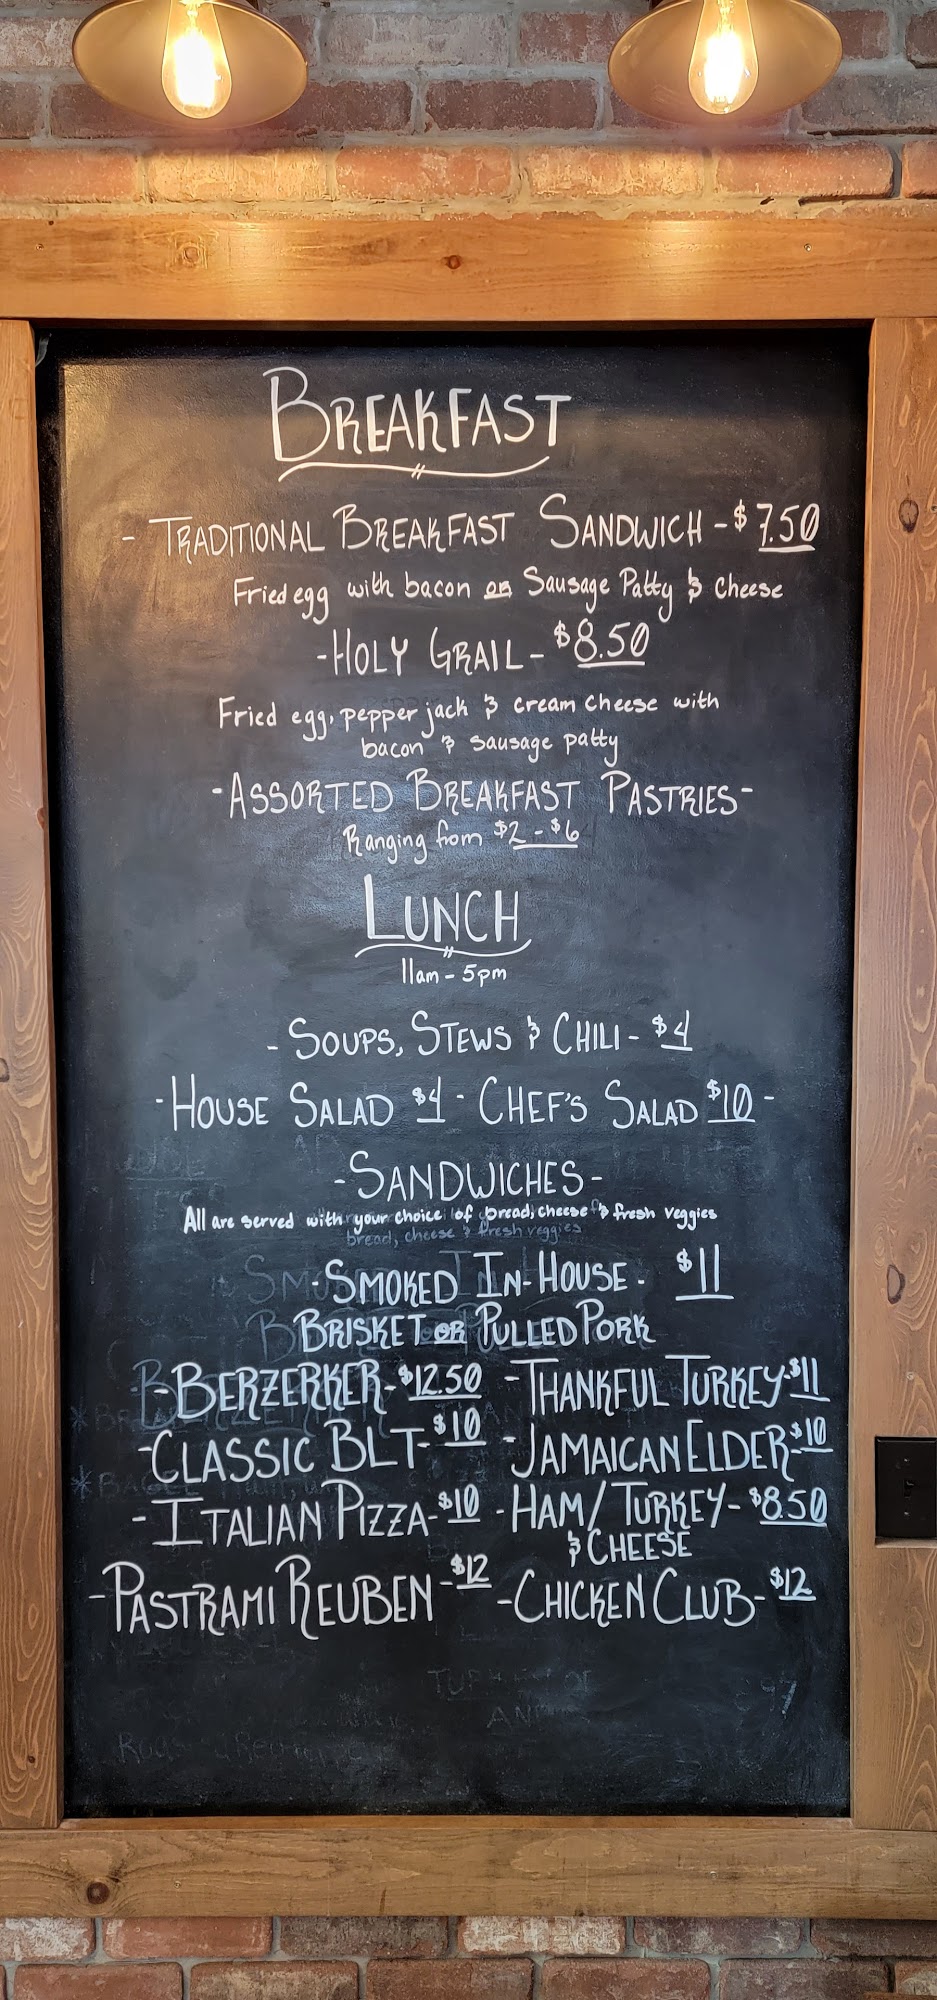 BREAKFAST
- TRADITIONAL BREAKFAST SANDWICH - $7.50
Fried egg with bacon or Sausage Patty & Cheese
- HOLY GRAIL - $8.50
Fried egg, pepper jack & cream cheese with
bacon & sausage patty
- ASSORTED BREAKFAST PASTRIES -
Ranging from $2 - $6
LUNCH
11am - 5pm
- SOUPS, STEWS & CHILI - $4
- HOUSE SALAD $4 - CHEF'S SALAD $10 -
- SANDWICHES -
All are served with your choice of bread, cheese & fresh veggies
bread, cheese & fresh veggies
- SMOKED IN-HOUSE - $11
BRISKET OR PULLED PORK
- BERZERKER - $12.50 - THANKFUL TURKEY - $11
- CLASSIC BLT - $10 - JAMAICAN ELDER - $10
- ITALIAN PIZZA - $10 - HAM/TURKEY - $8.50
& CHEESE
- PASTRAMI REUBEN - $12 - CHICKEN CLUB - $12